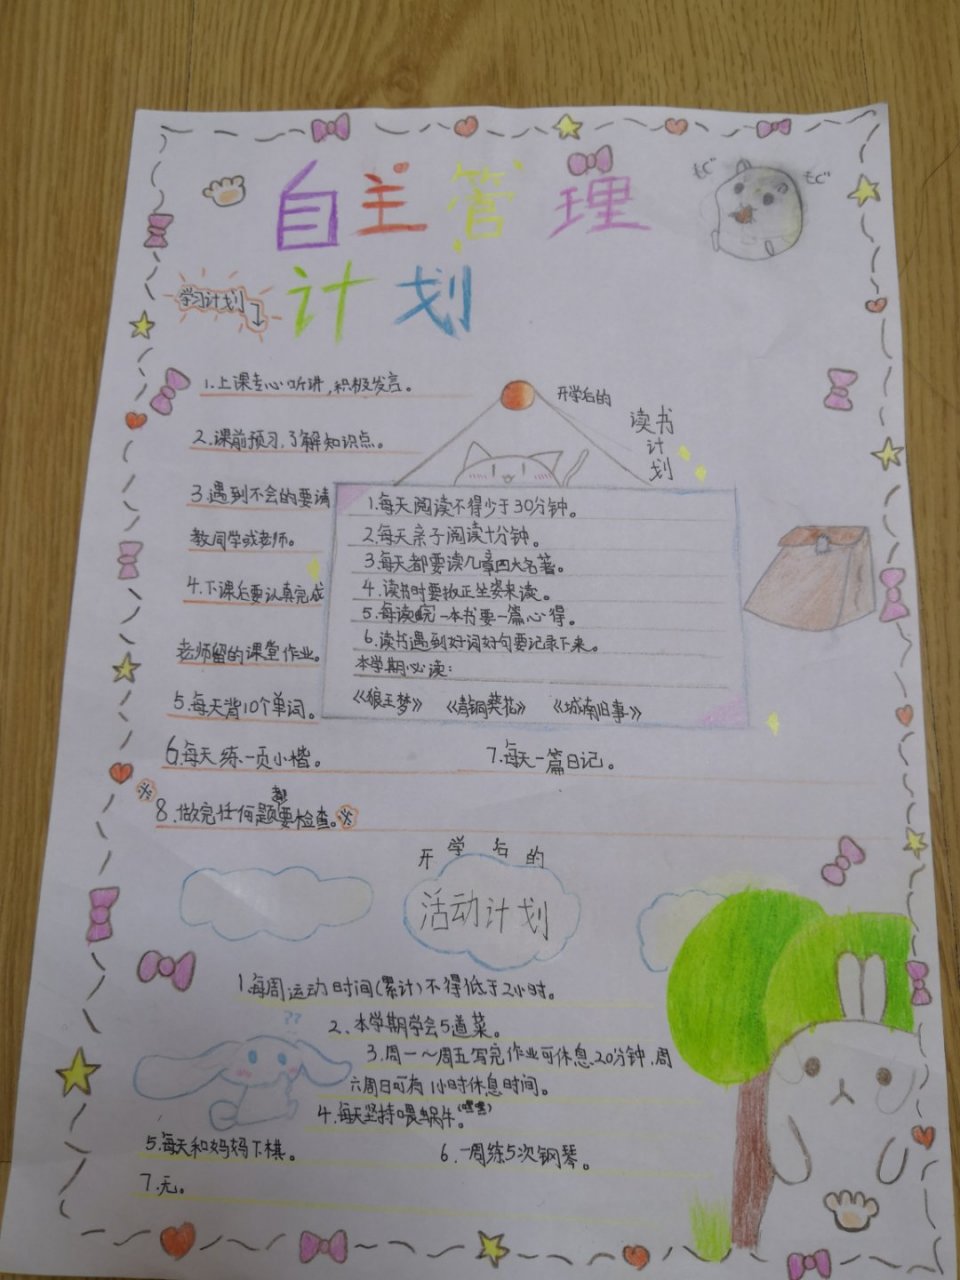 自主管理
计划
学习计划
1.上课专心听讲,积极发言。
2.课前预习,了解知识点。
3.遇到不会的要请
教同学或老师。
4.下课后要认真完成
老师留的课堂作业。
5.每天背10个单词。
6.每天练一页小楷。
7.每天一篇日记。
8.做完任何题都要检查。
开学后的
读书
计
划
1.每天阅读不得少于30分钟。
2.每天亲子阅读十分钟。
3.每天都要读几章四大名著。
4.读书时要拔正坐姿来读。
5.每读完一本书要一篇心得。
6.读书遇到好词好句要记录下来。
本学期必读:
《狼王梦》 《青铜葵花》 《城南旧事》
开学后的
活动计划
1.每周运动时间(累计)不得低于2小时。
2.本学期学会5道菜。
3.周一~周五写完作业可休息20分钟,周
六周日可有1小时休息时间。
4.每天坚持喂蜗牛。(嘿嘿)
5.每天和妈妈下棋。
6.一周练5次钢琴。
7.无。
??